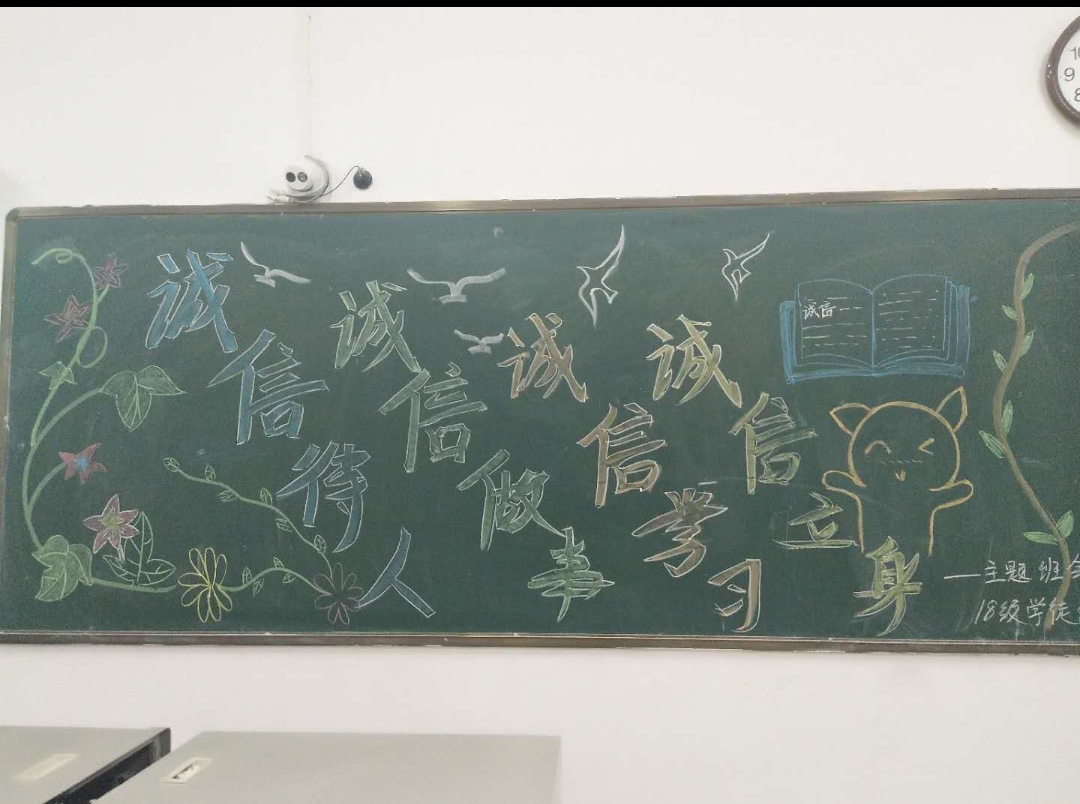 诚信待人
诚信做事
诚信学习
诚信立身
诚信
—主题班会
18级学徒
10
9
8